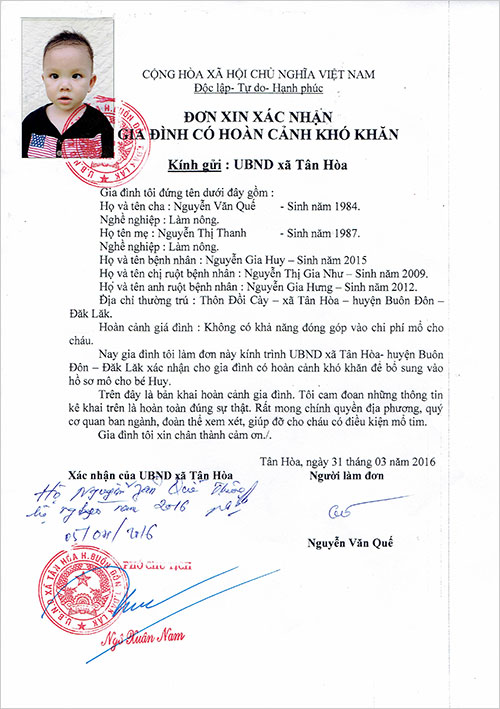 CỘNG HÒA XÃ HỘI CHỦ NGHĨA VIỆT NAM
Độc lập- Tự do- Hạnh phúc
ĐƠN XIN XÁC NHẬN
GIA ĐÌNH CÓ HOÀN CẢNH KHÓ KHĂN
Kính gửi : UBND xã Tân Hòa
Gia đình tôi đứng tên dưới đây gồm :
Họ và tên cha : Nguyễn Văn Quế - Sinh năm 1984.
Nghề nghiệp : Làm nông.
Họ tên mẹ : Nguyễn Thị Thanh - Sinh năm 1987.
Nghề nghiệp : Làm nông.
Họ và tên bệnh nhân : Nguyễn Gia Huy – Sinh năm 2015
Họ và tên chị ruột bệnh nhân : Nguyễn Thị Gia Như – Sinh năm 2009.
Họ và tên anh ruột bệnh nhân : Nguyễn Gia Hưng – Sinh năm 2012.
Địa chỉ thường trú : Thôn Đồi Cày – xã Tân Hòa – huyện Buôn Đôn –
Đăk Lăk.
Hoàn cảnh giá đình : Không có khả năng đóng góp vào chi phí mổ cho
cháu.
Nay gia đình tôi làm đơn này kính trình UBND xã Tân Hòa- huyện Buôn
Đôn – Đăk Lăk xác nhận cho gia đình có hoàn cảnh khó khăn để bổ sung vào
hồ sơ mô cho bé Huy.
Trên đây là bản khai hoàn cảnh gia đình. Tôi cam đoan những thông tin
kê khai trên là hoàn toàn đúng sự thật. Rất mong chính quyền địa phương, quý
cơ quan ban ngành, đoàn thể xem xét, giúp đỡ cho cháu có điều kiện mổ tim.
Gia đình tôi xin chân thành cảm ơn./.
Tân Hòa, ngày 31 tháng 03 năm 2016
Xác nhận của UBND xã Tân Hòa Người làm đơn
Hộ Nguyễn Văn Quế Thường
hộ nghèo năm 2016
Nguyễn Văn Quế
PHÓ CHỦ TỊCH
U.B.N.D XÃ TÂN HÒA H.BUÔN ĐÔN T.ĐẮK LẮK
Ngô Xuân Nam